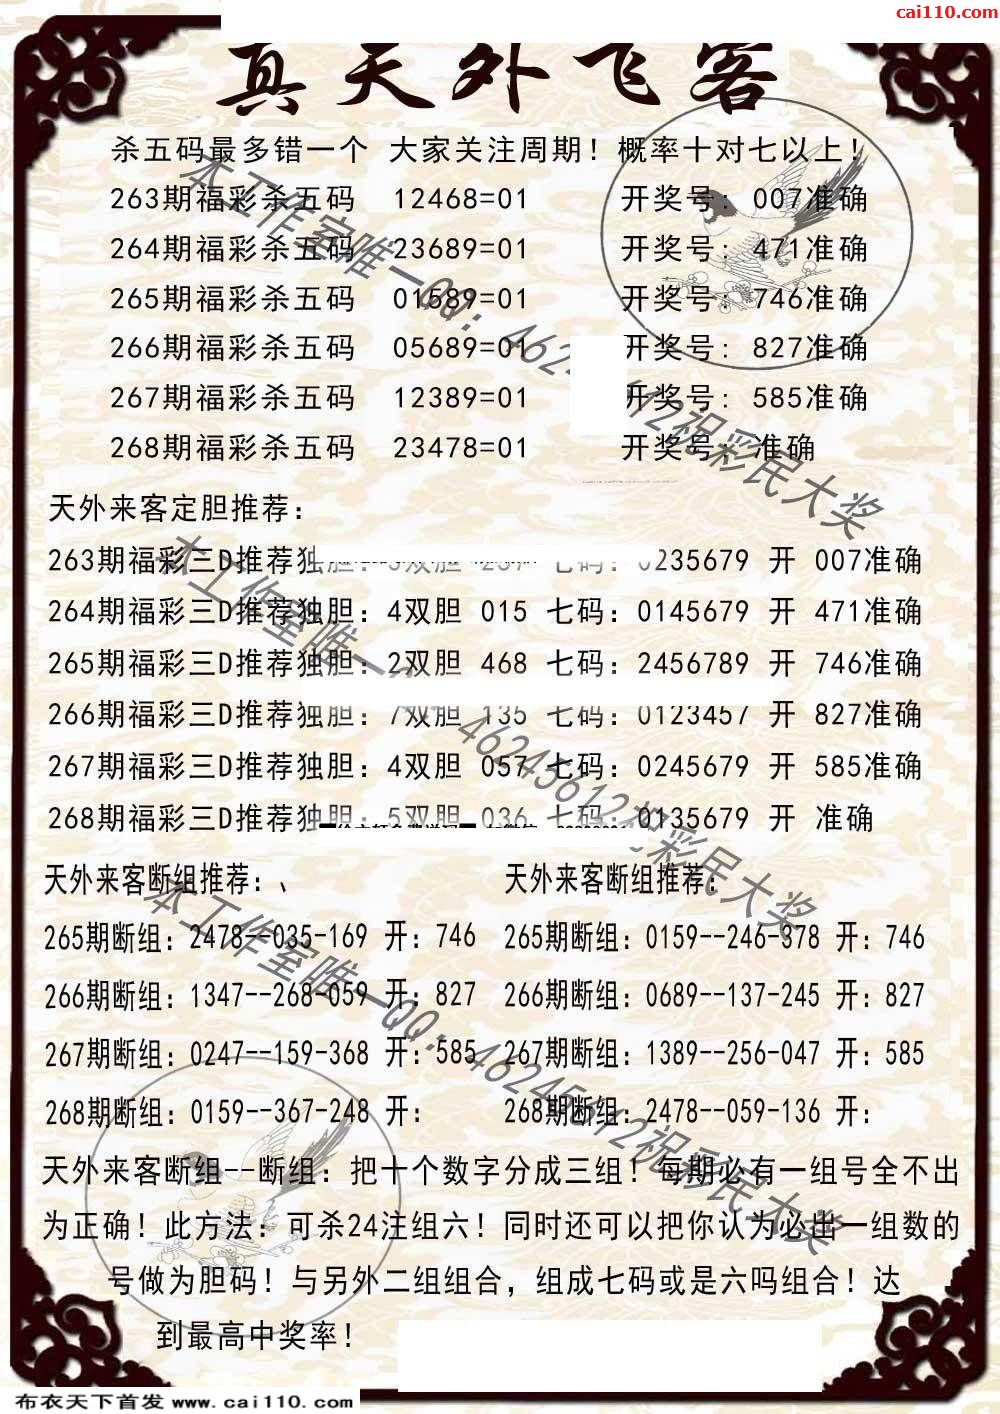 cai110.com
真天外飞客
杀五码最多错一个 大家关注周期！概率十对七以上！
263期福彩杀五码 12468=01 开奖号：007准确
264期福彩杀五码 23689=01 开奖号：471准确
265期福彩杀五码 01589=01 开奖号：746准确
266期福彩杀五码 05689=01 开奖号：827准确
267期福彩杀五码 12389=01 开奖号：585准确
268期福彩杀五码 23478=01 开奖号：准确
天外来客定胆推荐：
263期福彩三D推荐独胆： 双胆 七码：0235679 开 007准确
264期福彩三D推荐独胆：4双胆 015 七码：0145679 开 471准确
265期福彩三D推荐独胆：2双胆 468 七码：2456789 开 746准确
266期福彩三D推荐独胆：7双胆 135 七码：0123457 开 827准确
267期福彩三D推荐独胆：4双胆 057 七码：0245679 开 585准确
268期福彩三D推荐独胆：5双胆 036 七码：0135679 开 准确
天外来客断组推荐：、 天外来客断组推荐：
265期断组：2478--035-169 开：746 265期断组：0159--246-378 开：746
266期断组：1347--268-059 开：827 266期断组：0689--137-245 开：827
267期断组：0247--159-368 开：585 267期断组：1389--256-047 开：585
268期断组：0159--367-248 开： 268期断组：2478--059-136 开：
天外来客断组--断组：把十个数字分成三组！每期必有一组号全不出
为正确！此方法：可杀24注组六！同时还可以把你认为必出一组数的
号做为胆码！与另外二组组合，组成七码或是六吗组合！达
到最高中奖率！
本工作室唯一QQ：462 12祝彩民大奖
本工作室唯一 46245612祝彩民大奖
本工作室唯一QQ：46245612祝彩民大奖
布衣天下首发 www.cai110.com